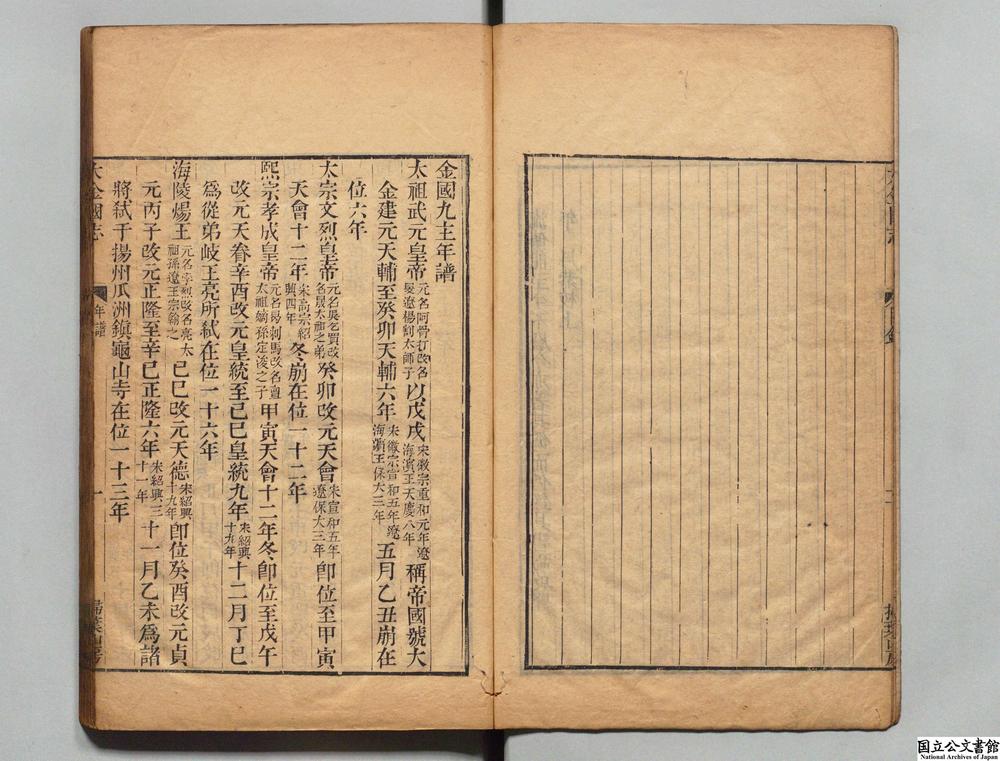 金國九主年譜
太祖武元皇帝元名阿骨打改名旻遼楊割太師子以戊戌宋徽宗重和元年遼海濱王天慶八年稱帝國號大
金建元天輔至癸卯天輔六年宋徽宗宣和五年遼海濱王保大三年五月乙丑崩在
位六年
太宗文烈皇帝元名吳乞買改名晟太祖之弟癸卯改元天會宋宣和五年遼保大三年卽位至甲寅
天會十二年宋高宗紹興四年冬崩在位一十二年
熙宗孝成皇帝元名曷剌馬改名亶太祖嫡孫定浚之子甲寅天會十二年冬卽位至戊午
改元天眷辛酉改元皇統至己巳皇統九年宋紹興十九年十二月丁巳
爲從弟岐王亮所弒在位一十六年
海陵煬王元名孛烈改名亮太祖孫遼王宗翰之己巳改元天德宋紹興十九年卽位癸酉改元貞
元丙子改元正隆至辛巳正隆六年宋紹興三十一年十一月乙未爲諸
將弒于揚州瓜洲鎮龜山寺在位一十三年
大金國志
年譜
一
掃葉山房
国立公文書館
National Archives of Japan